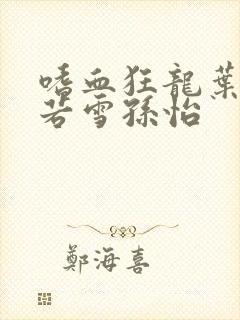 嗜血狂龍葉
若雪孫怡
鄭海喜